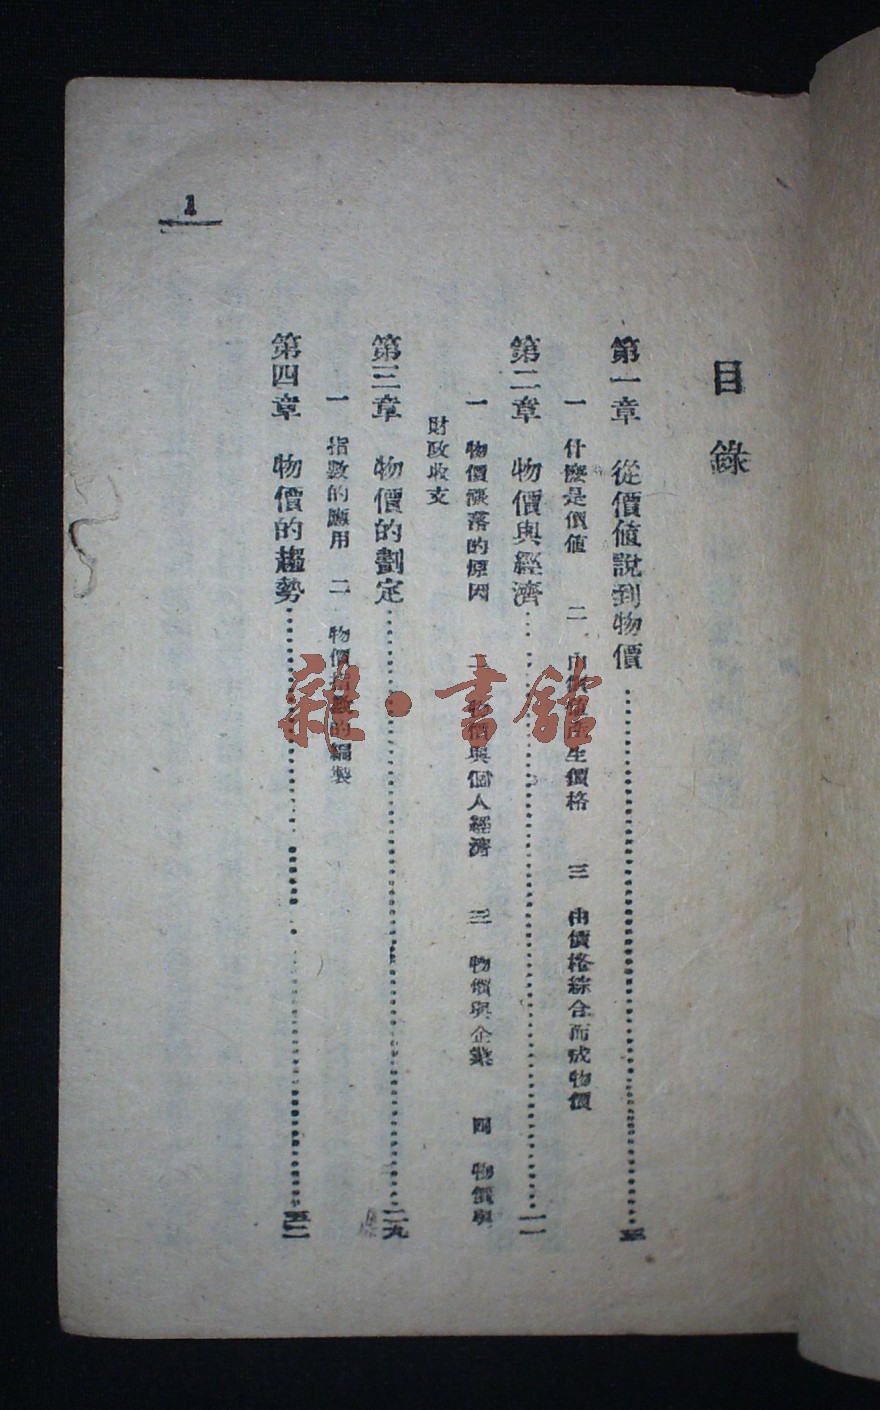 目錄
第一章 從價値說到物價……五
一 什麼是價値 二 由價値產生價格 三 由價格綜合而成物價
第二章 物價與經濟……一一
一 物價漲落的原因 二 物價與個人經濟 三 物價與企業 四 物價與
財政收支
第三章 物價的劃定……二九
一 指數的應用 二 物價指數的編製
第四章 物價的趨勢……五二
1
雜·書舘